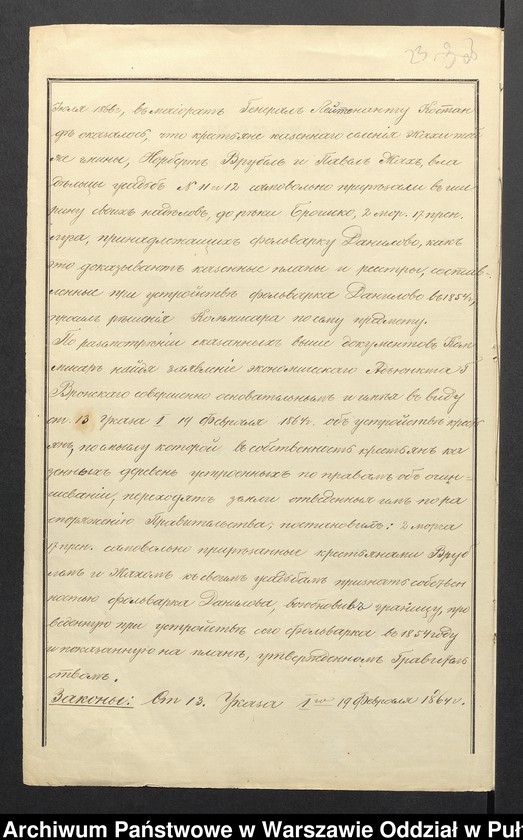 Іюля 1866 г., въ маіоратъ Генералъ Лейтенанту Костан
дѣ оказалось, что крестьяне казеннаго селенія
же гмины, Норбертъ Врубель и Павелъ Жахъ, вла
дѣльцы усадебъ № 11 и 12 самовольно прирѣзали въ ши
рину своихъ надѣловъ, до рѣки Брошко, 2 мор. 17 прен.
луга, принадлежащихъ фольварку Данилово, какъ
это доказываютъ казенные планы и реестры, состав-
ленные при устройствѣ фольварка Данилово въ 1854 г.,
просилъ рѣшенія Коммисара по сему предмету.
По разсмотрѣніи сказанныхъ выше документовъ Ком
мисаръ найдя заявленіе экономическаго Адъюнкта Г.
Вронскаго совершенно основательнымъ и имѣя въ виду
ст. 13 Указа I 19 Февраля 1864 г. объ устройствѣ кресть
янъ, по смыслу которой въ собственность крестьянъ ка
зенныхъ деревень устроенныхъ по правамъ объ очин-
шеваніи, переходятъ земли отведенныя имъ по ра
споряженію Правительства, постановилъ: 2 морга
17 прен. самовольно прирѣзанные крестьянами Врубе
лемъ и Жахомъ къ своимъ усадьбамъ признать собствен
ностью фольварка Данилова, возобновивъ границу, про
веденную при устройствѣ сего фольварка въ 1854 году
и показанную на планѣ, утвержденномъ Правитель
ствомъ.
Законы: Ст. 13. Указа I го 19 Февраля 1864 г.
Archiwum Państwowe w Warszawie Oddział w Puł